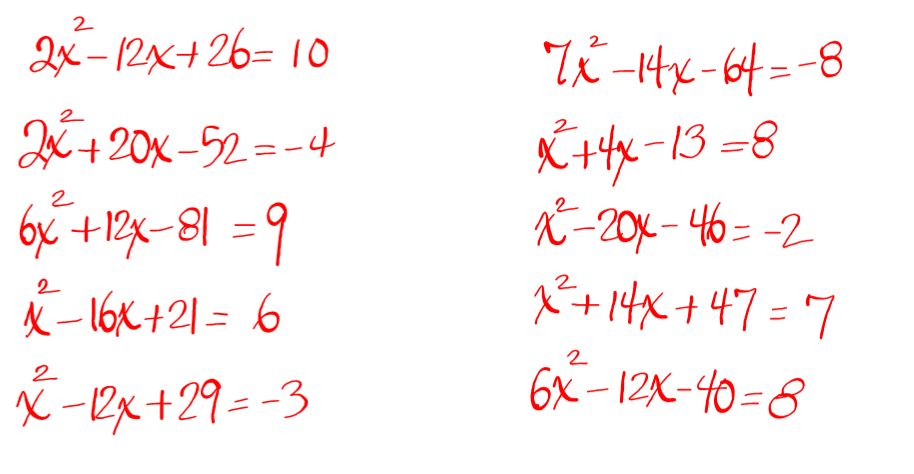 2x² - 12x + 26 = 10
2x² + 20x - 52 = -4
6x² + 12x - 81 = 9
x² - 16x + 21 = 6
x² - 12x + 29 = -3
7x² - 14x - 64 = -8
x² + 4x - 13 = 8
x² - 20x - 46 = -2
x² + 14x + 47 = 7
6x² - 12x - 40 = 8